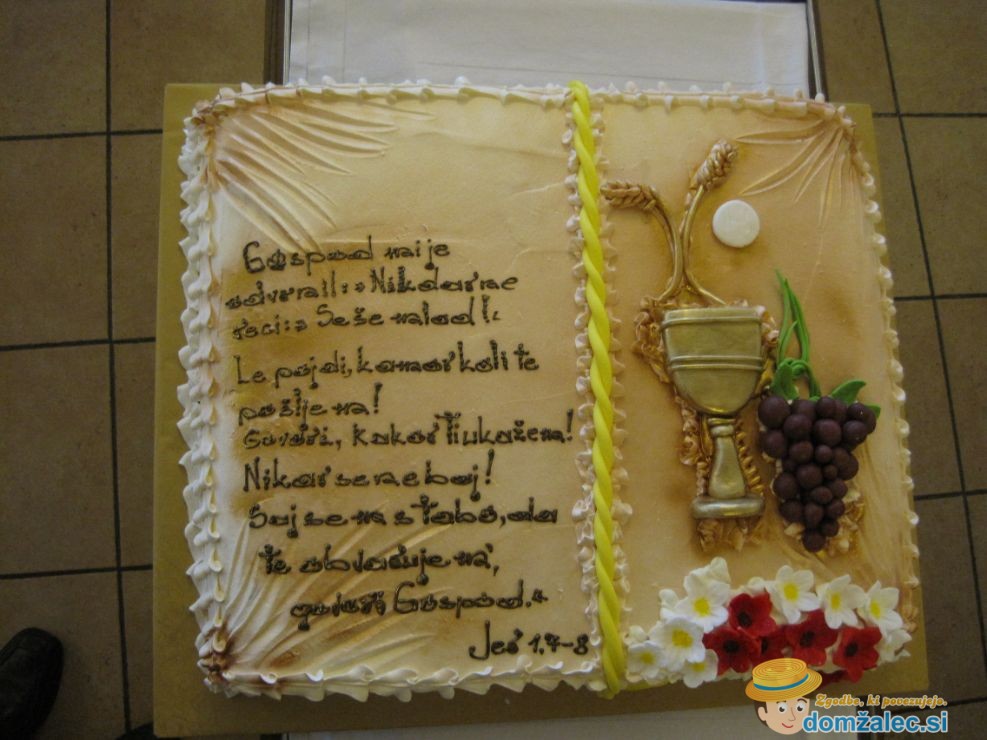 Gospod mi je
odvrnil: »Nikdar ne
reci: » Se še mlad!«
Le pojdi, kamor koli te
pošljem!
Govori, kakor ti ukažem!
Nikar se ne boj!
Saj sem s tabo, da
te obvadujem,
govori Gospod.“
Jer 1.7-8
Zgodbe, ki povezujejo.
domžalec.si